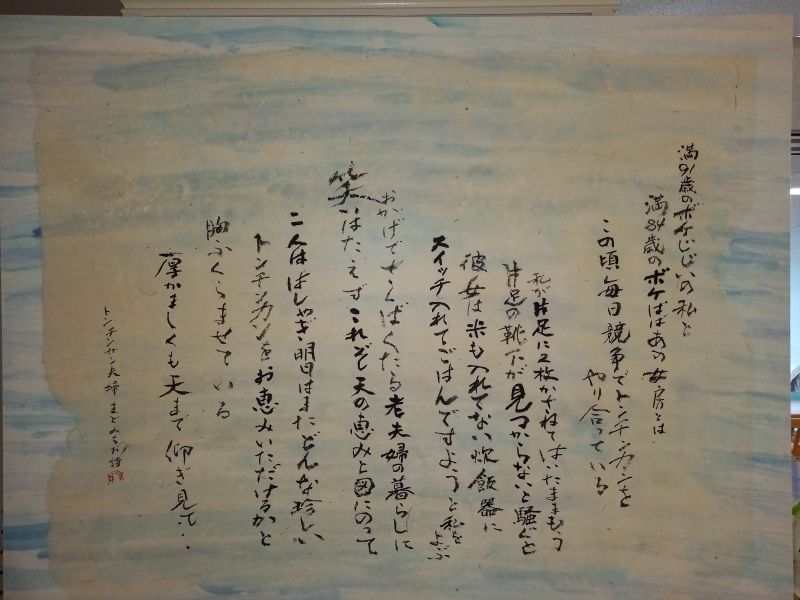 満91歳のボケじじいの私と
満84歳のボケばばあの女房とは
この頃毎日競争でトンチンカンを
やり合っている
私が片足に2枚かさねてはいたままもう
片足の靴下が見つからないと騒ぐと
彼女は米も入れてない炊飯器に
スイッチ入れてごはんですようと私をよぶ
おかげでさくばくたる老夫婦の暮らしに
笑いはたえずこれぞ天の恵みと図にのって
二人ははしゃぎ明日はまたどんな珍しい
トンチンカンをお恵みいただけるかと
胸ふくらませている
厚かましくも天まで仰ぎ見て・・
トンチンカン夫婦 まどみちお詩